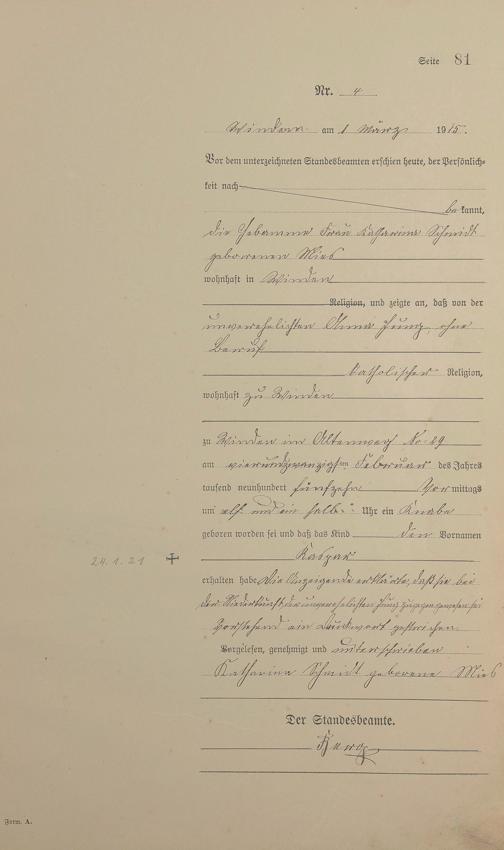 Seite 81
Nr. 4
Winden am 1 März 1915.
Vor dem unterzeichneten Standesbeamten erschien heute, der Persönlich-
keit nach
bekannt,
die Hebamme Frau Katharina Schmidt
geborenen Mies
wohnhaft in Winden
Religion, und zeigte an, daß von der
unverehelichten Anna Jung, ohne
Beruf
katholischer Religion,
wohnhaft zu Winden
zu Winden im Altenweg No 29
am vierundzwanzigsten Februar des Jahres
tausend neunhundert fünfzehn Vormittags
um elf und ein halb Uhr ein Knabe
geboren worden sei und daß das Kind den Vornamen
Kaspar
24.1.21 +
erhalten habe. Die Anzeigende erklärte, daß sie bei
der Niederkunft der unverehelichten Jung zugegen gewesen sei
Vorstehend ein Druckwort gestrichen.
Vorgelesen, genehmigt und unterschrieben
Katharina Schmidt geborene Mies
Der Standesbeamte.
Form. A.